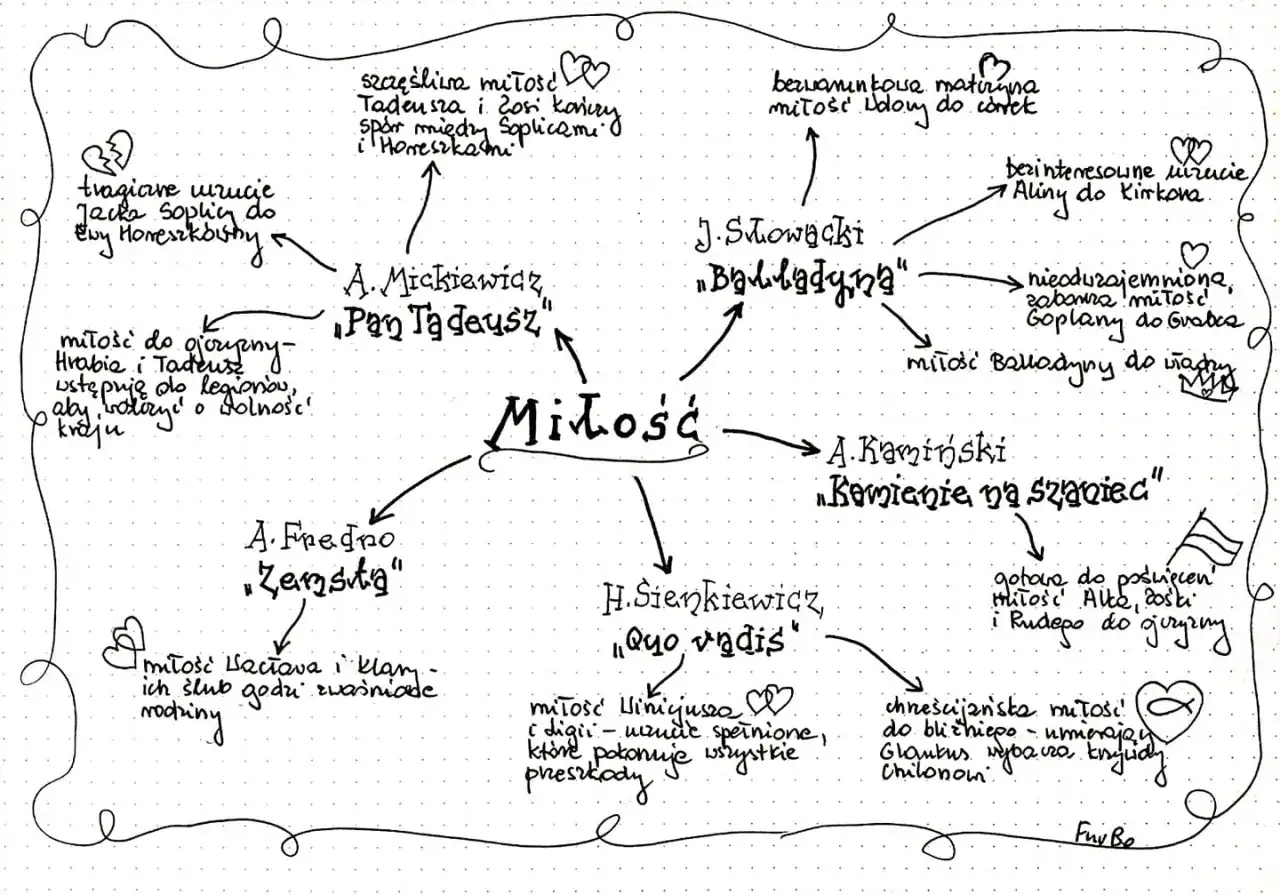 szczęśliwa miłość
Tadeusza i Zosi kończy
spór między Soplicami
i Horeszkami
bezwarunkowa matczyna
miłość Wdowy do córek
tragiczne uczucie
Jacka Soplicy do
Ewy Horeszkówny
bezinteresowne uczucie
Aliny do Kirkora
J. Słowacki
„Balladyna"
A. Mickiewicz
„Pan Tadeusz"
nieodwzajemniona,
zaborcza miłość
Goplany do Grabca
miłość do ojczyzny –
Hrabia i Tadeusz
wstępują do legionów,
aby walczyć o wolność
kraju
miłość Balladyny do władzy
Miłość
A. Kamiński
„Kamienie na szaniec"
A. Fredro
„Zemsta"
gotowa do poświęceń
miłość Alka, Zośki
i Rudego do ojczyzny
H. Sienkiewicz
„Quo vadis"
miłość Wacława i Klary –
ich ślub godzi zwaśnione
rodziny
miłość Winicjusza
i Ligii – uczucie spełnione,
które pokonuje wszystkie
przeszkody
chrześcijańska miłość
do bliźniego – umierający
Glaukus wybacza krzywdy
Chilonowi